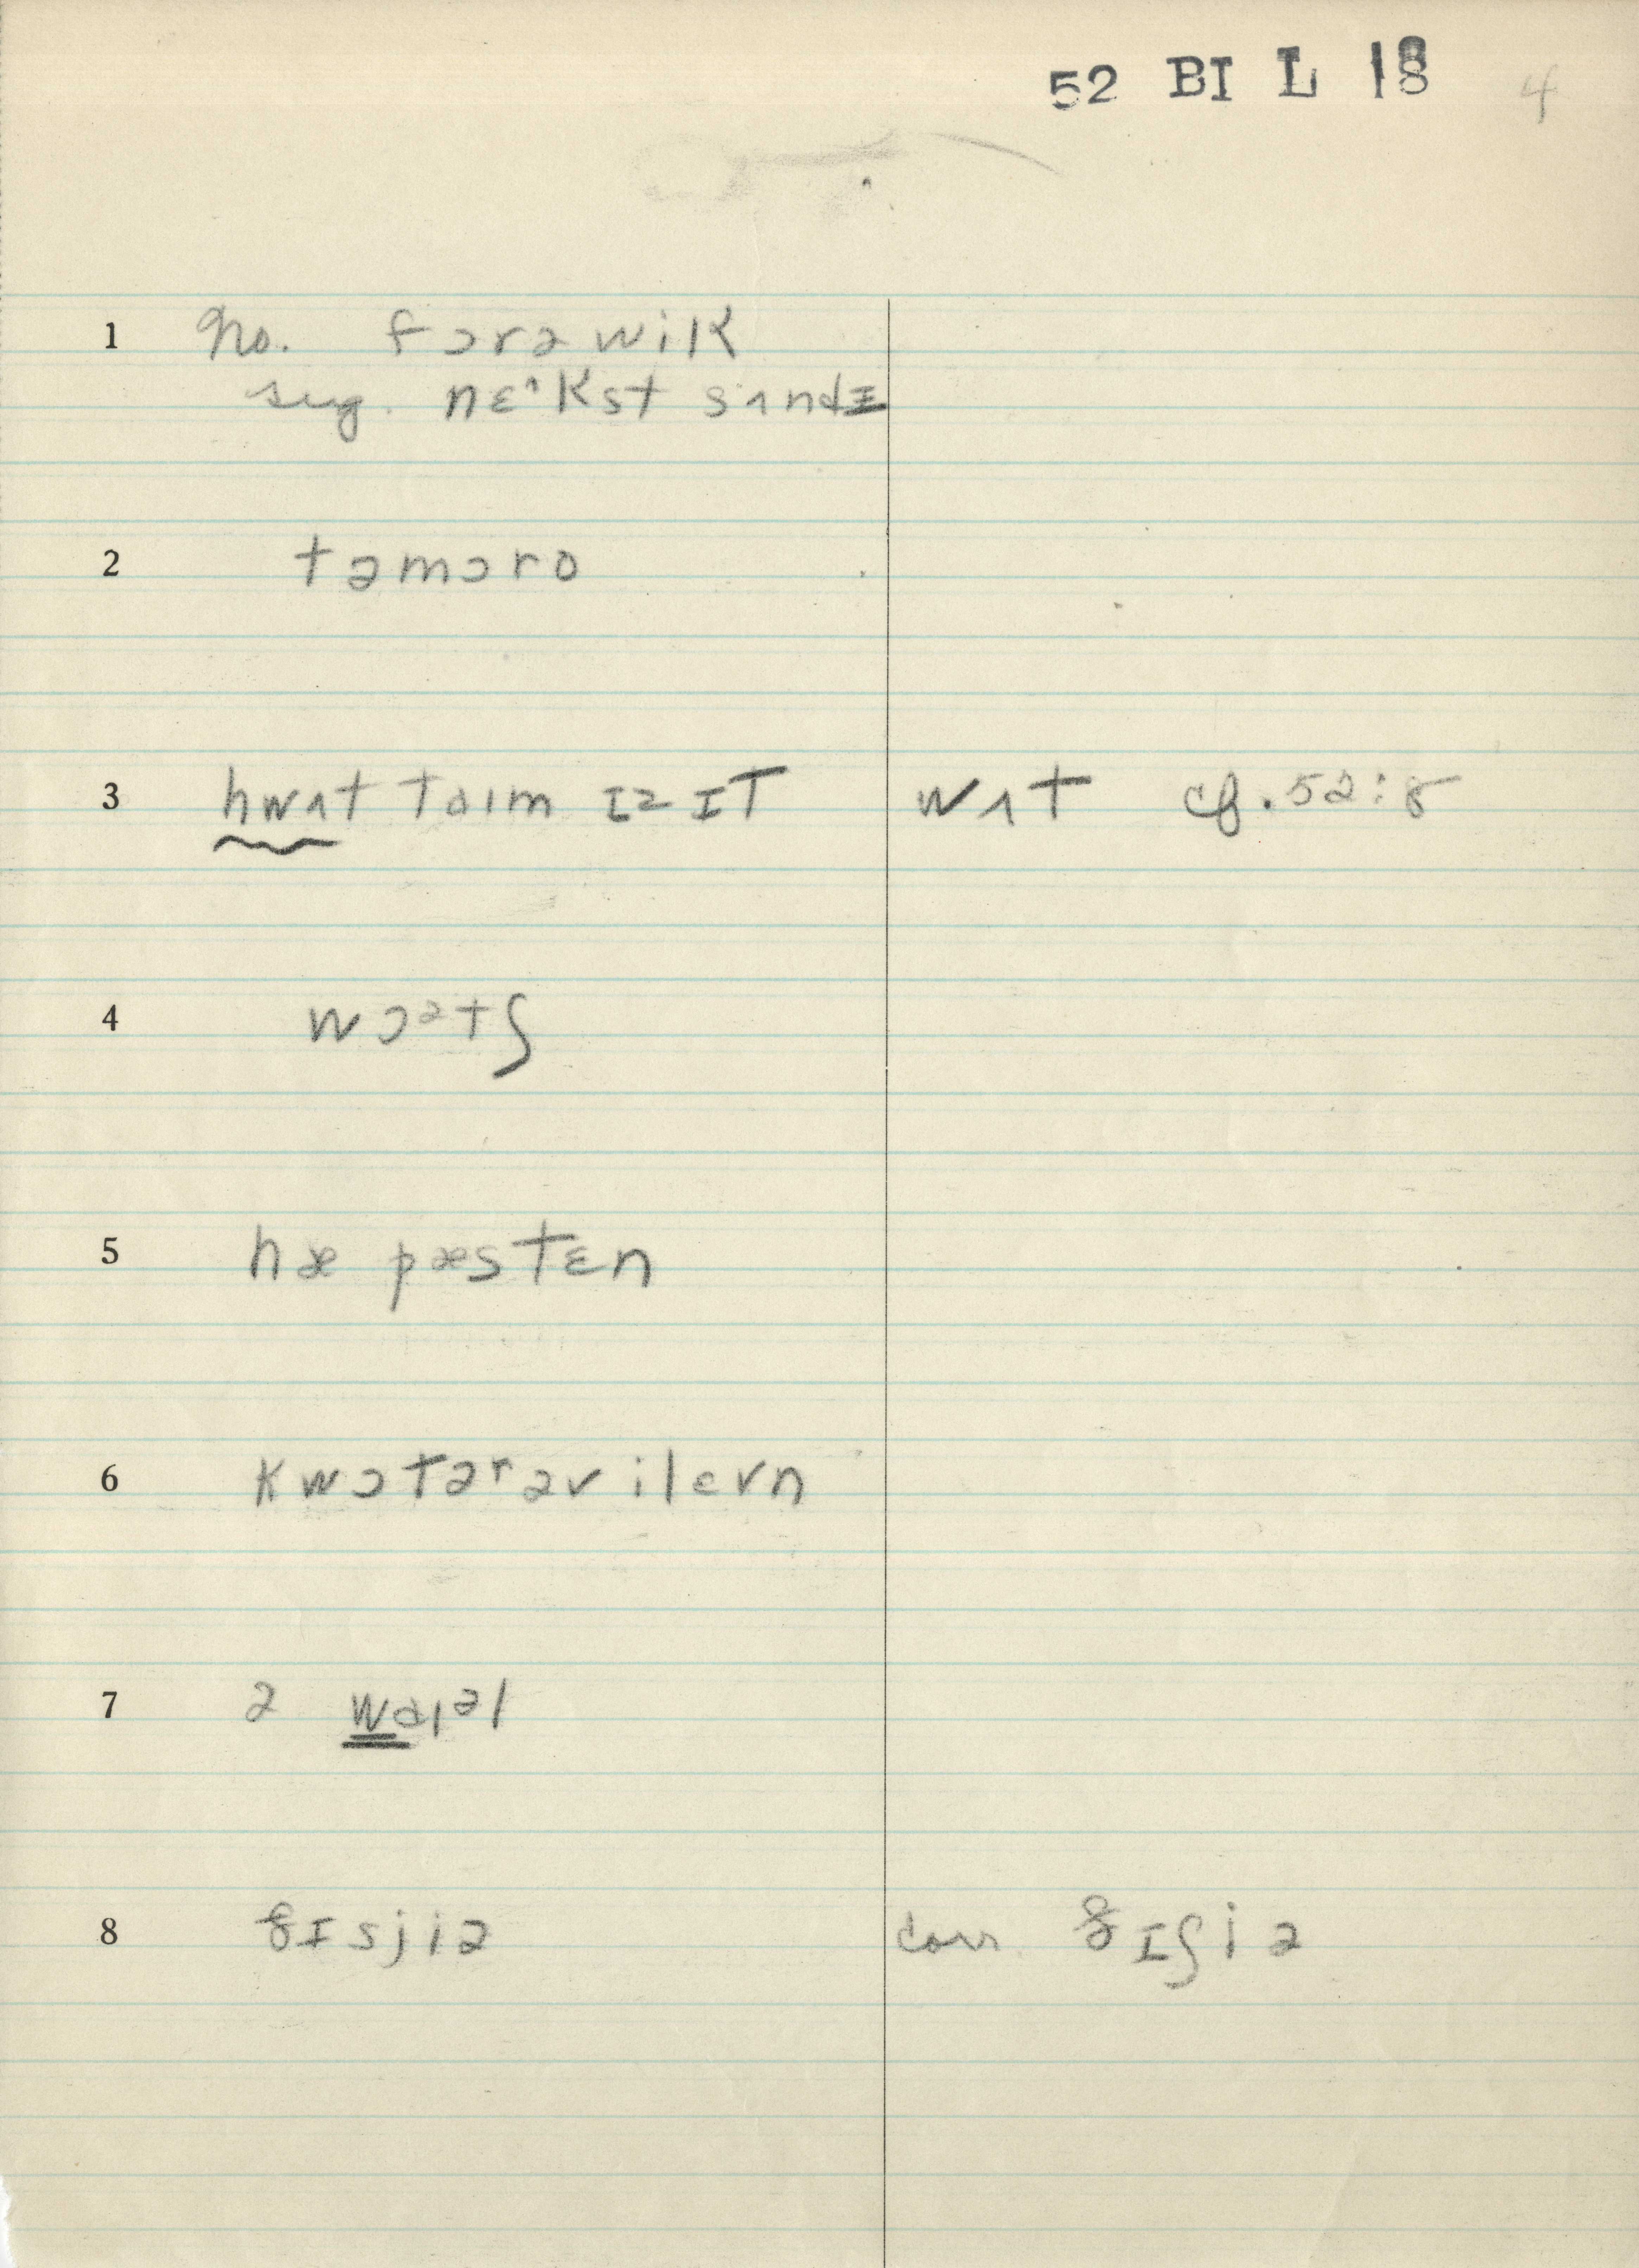 52 BI L 18 4
1 No. fɔrə wik
sug. nɛˆkst sʌndɪ
2 təmɔro
3 hwʌt taɪm ɪz ɪt wʌt cf. 52:8
4 wɔᵊtʃ
5 hæ pæstɛn
6 kwɔtəʳəv ilevn
7 ə waɪᵊl
8 jɪsjiə corr. jɪʃiə